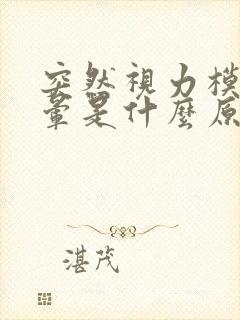 突然視力模
暈是什麼原
湛茂